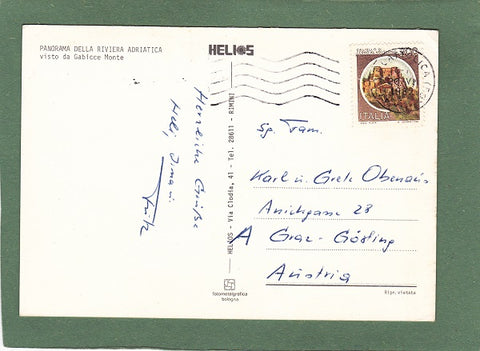 PANORAMA DELLA RIVIERA ADRIATICA
visto da Gabicce Monte
HELIOS
ITALIA
Herzliche Grüße
HELIOS - Via Clodia, 41 - Tel. 28611 - RIMINI
Sg. Fam.
Karl u. Grete Obenaus
Anichgasse 28
A Graz - Gösting
Austria
fotometalgrafica
bologna
Ripr. vietata